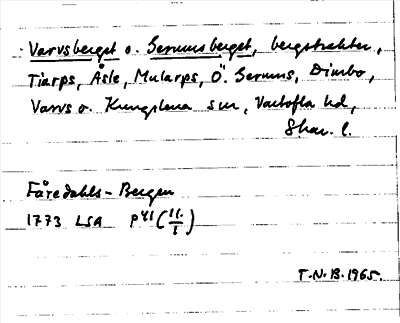 Varvsberget o. Gerumsberget, bergstrakter,
Tiarps, Åsle, Mularps, Ö. Gerums, Dimbo,
Varvs o. Kungslena snr, Vartofta hd,
Skar. l.
Fåredahls-Bergen
1773 LSA P41
T.N.B. 1965.